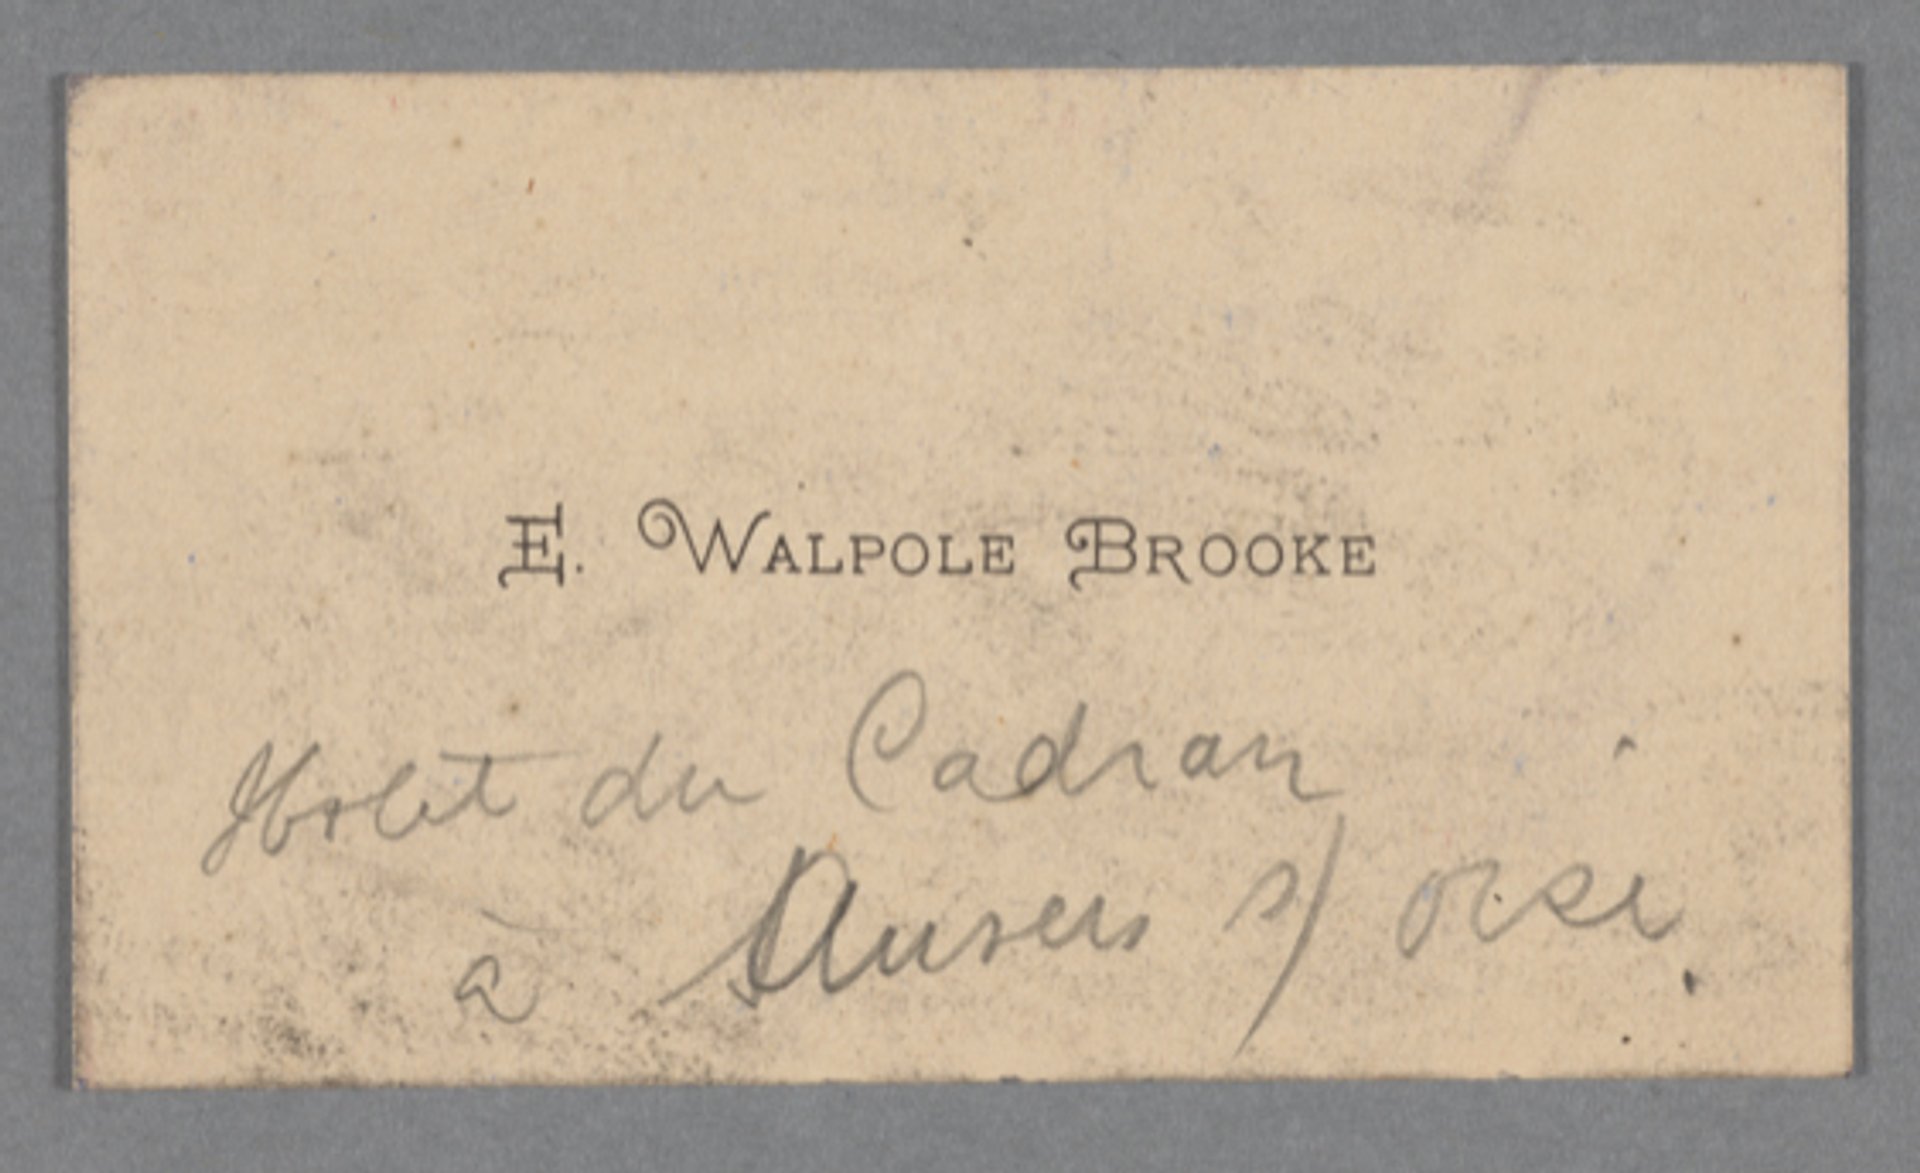 E. WALPOLE BROOKE
Hotel du Cadran
à Auvers s/ Oise.